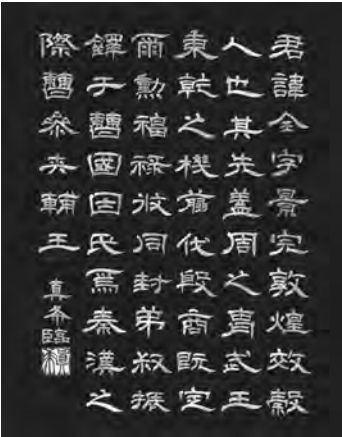 君諱全字景完敦煌效穀
人也其先蓋周之胄武王
秉乾之機翦伐殷商既定
爾勳福祿攸同封弟叔振
鐸于曹國因氏焉秦漢之
際曹參夾輔王
真希臨